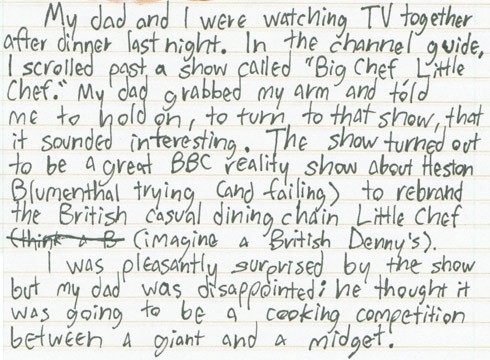 My dad and I were watching TV together
after dinner last night. In the channel guide,
I scrolled past a show called "Big Chef Little
Chef." My dad grabbed my arm and told
me to hold on, to turn to that show, that
it sounded interesting. The show turned out
to be a great BBC reality show about Heston
Blumenthal trying (and failing) to rebrand
the British casual dining chain Little Chef
(think a B (imagine a British Denny's).
I was pleasantly surprised by the show
but my dad was disappointed; he thought it
was going to be a cooking competition
between a giant and a midget.